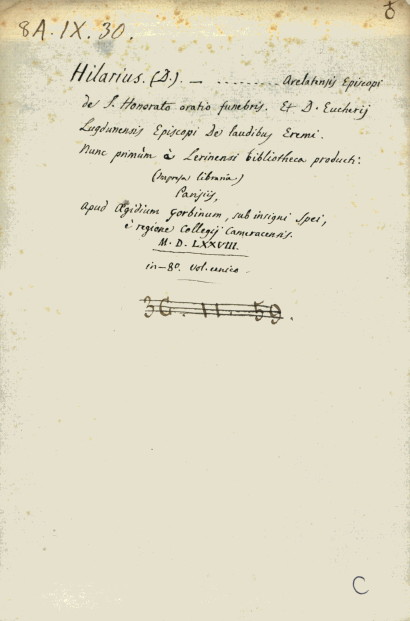 8A.IX.30.
Hilarius. (D.) — .......... Arelatensis Episcopi
de S. Honorato oratio funebris. Et D. Eucherij
Lugdunensis Episcopi De laudibus Eremi.
Nunc primùm à Lerinensi bibliotheca producti.
(Impresa libraria)
Parisiis,
Apud Ægidium Gorbinum, sub insigni Spei,
è regione Collegij Cameracensis.
M. D. LXXVIII.
in-8º. vol. unico.
36.11.59.
C